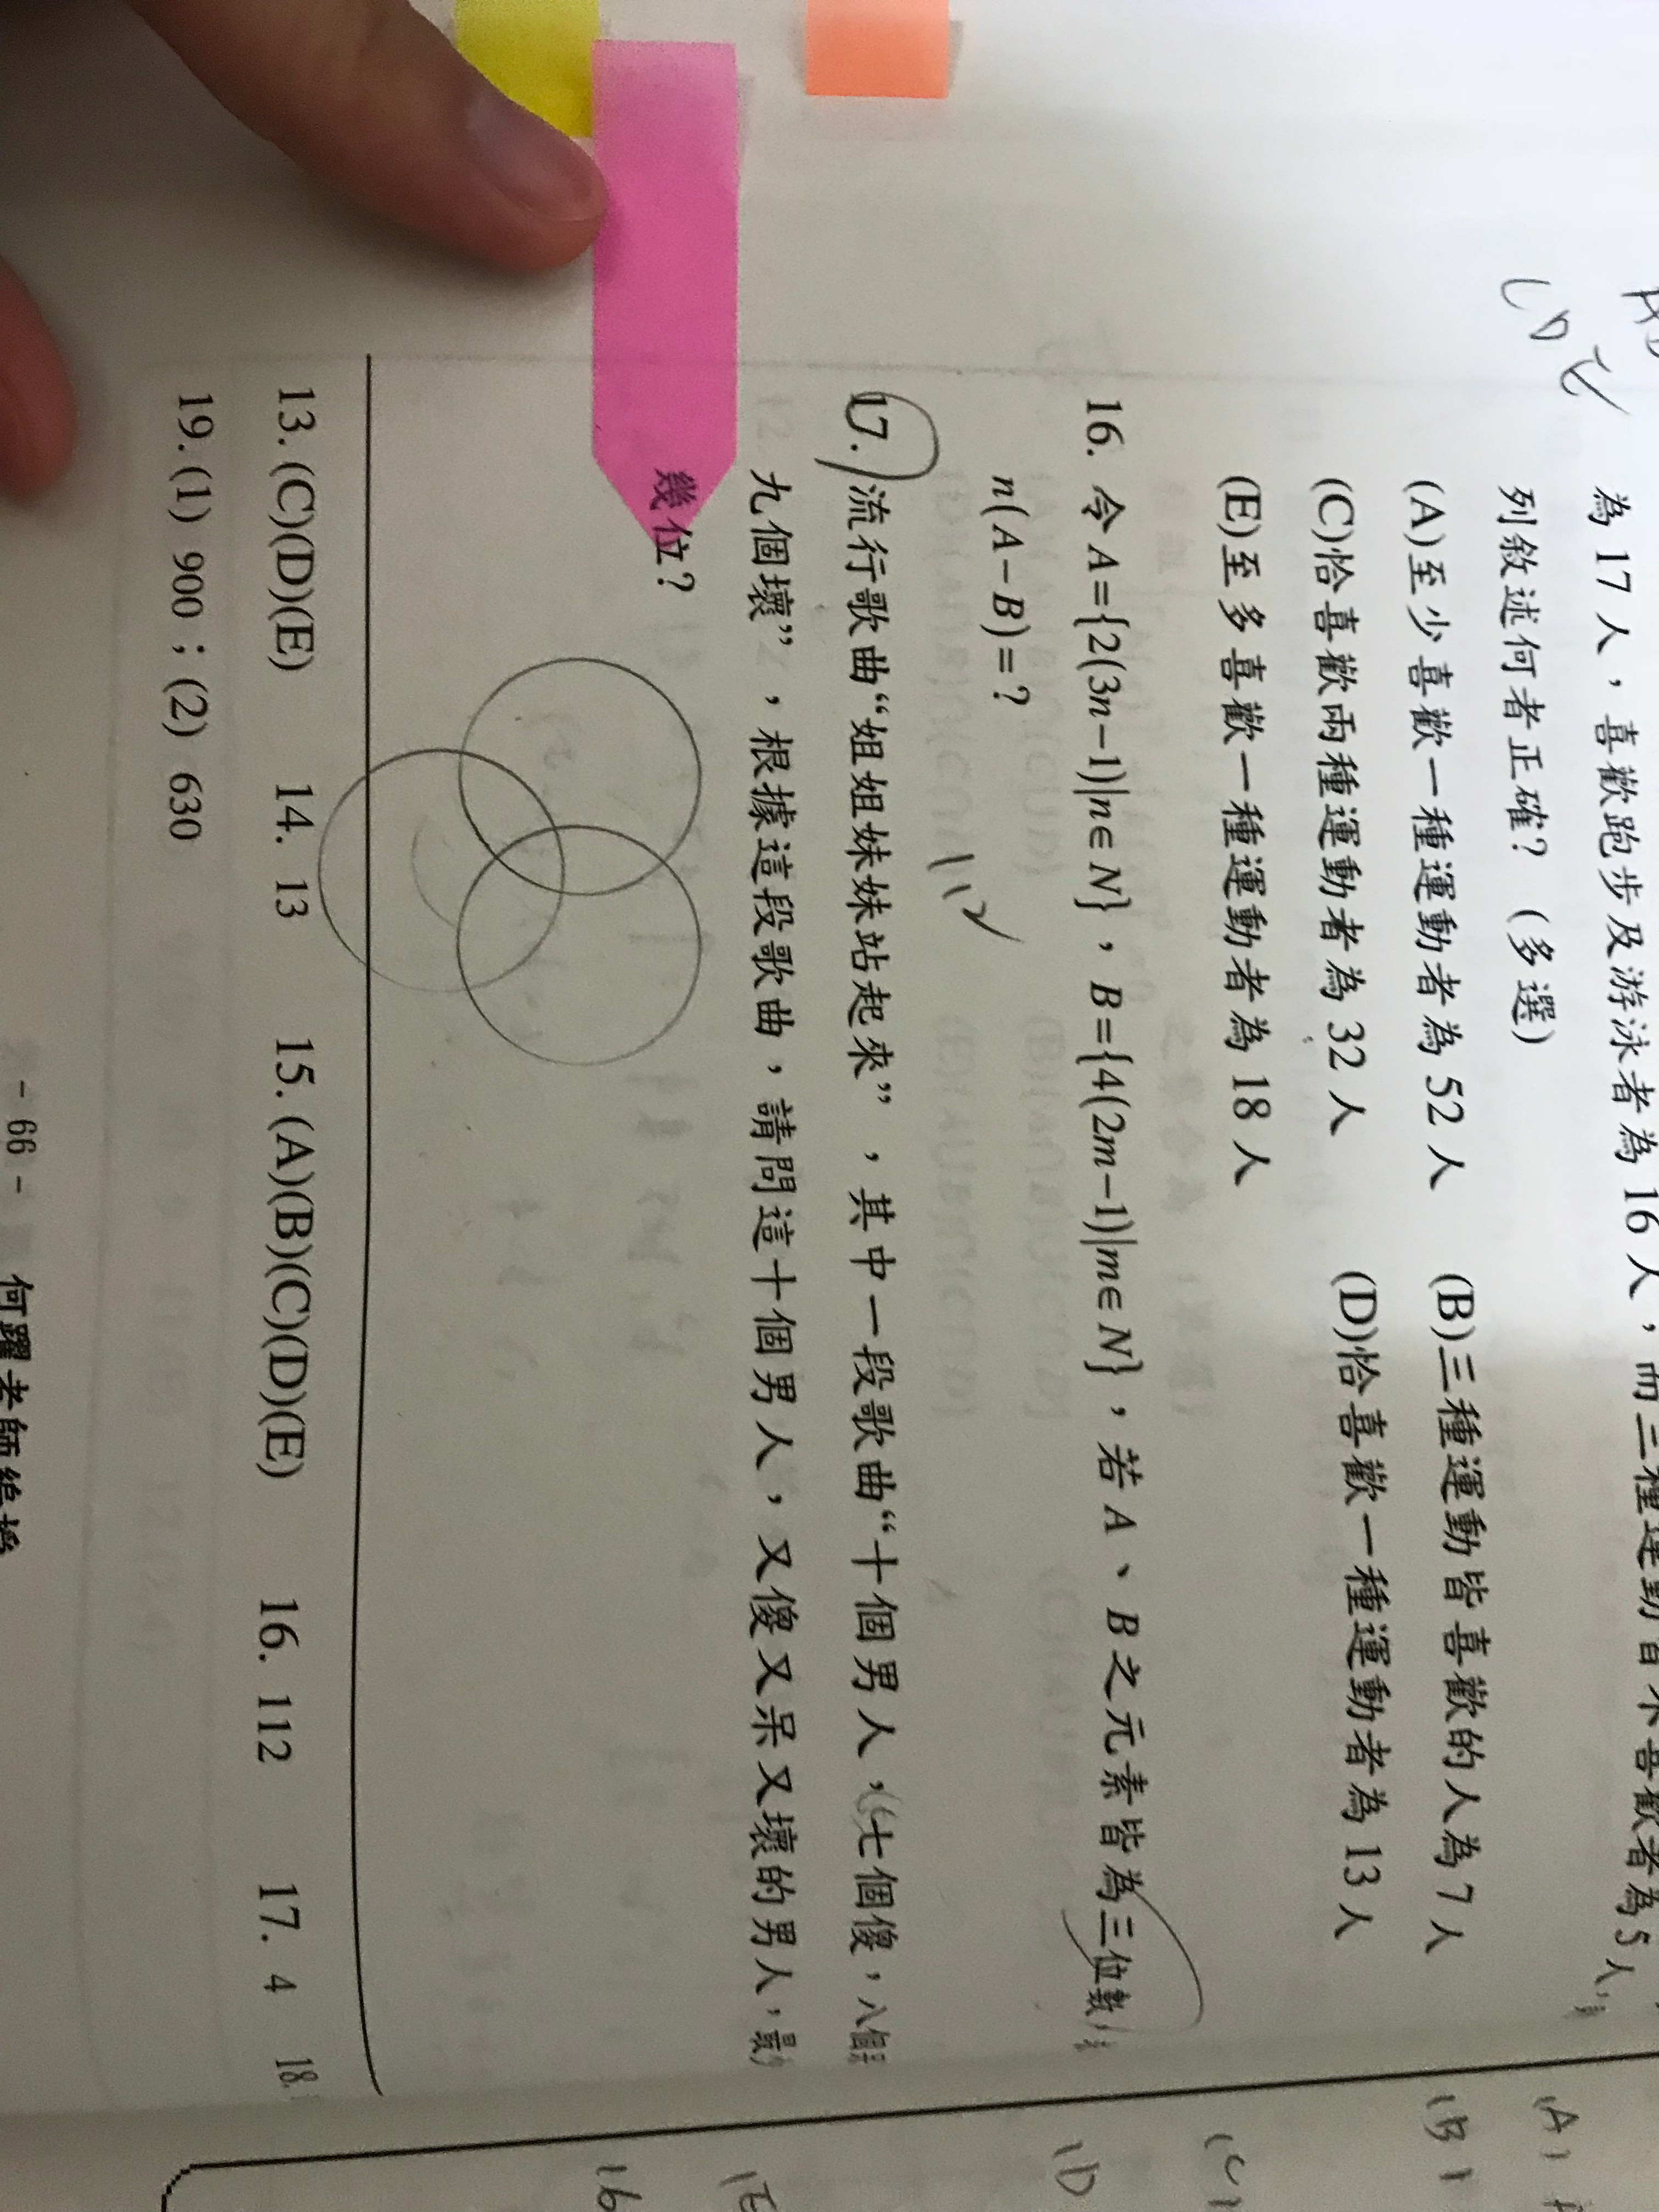 為 17 人，喜歡跑步及游泳者為 16 人，而三種運動皆不喜歡者為 5 人，
列敘述何者正確？(多選)
(A)至少喜歡一種運動者為 52 人 (B)三種運動皆喜歡的人為 7 人
(C)恰喜歡兩種運動者為 32 人 (D)恰喜歡一種運動者為 13 人
(E)至多喜歡一種運動者為 18 人
16. 令 A={2(3n−1)|n∈N}，B={4(2m−1)|m∈N}，若 A、B 之元素皆為三位數，
n(A−B)=？
112
17. 流行歌曲“姐姐妹妹站起來”，其中一段歌曲“十個男人，七個傻，八個
九個壞”，根據這段歌曲，請問這十個男人，又傻又呆又壞的男人，最
幾位？
13. (C)(D)(E) 14. 13 15. (A)(B)(C)(D)(E) 16. 112 17. 4 18.
19. (1) 900；(2) 630
- 66 -
何躍老師編授
(A)
(B)
(C)
(D)
(E
16